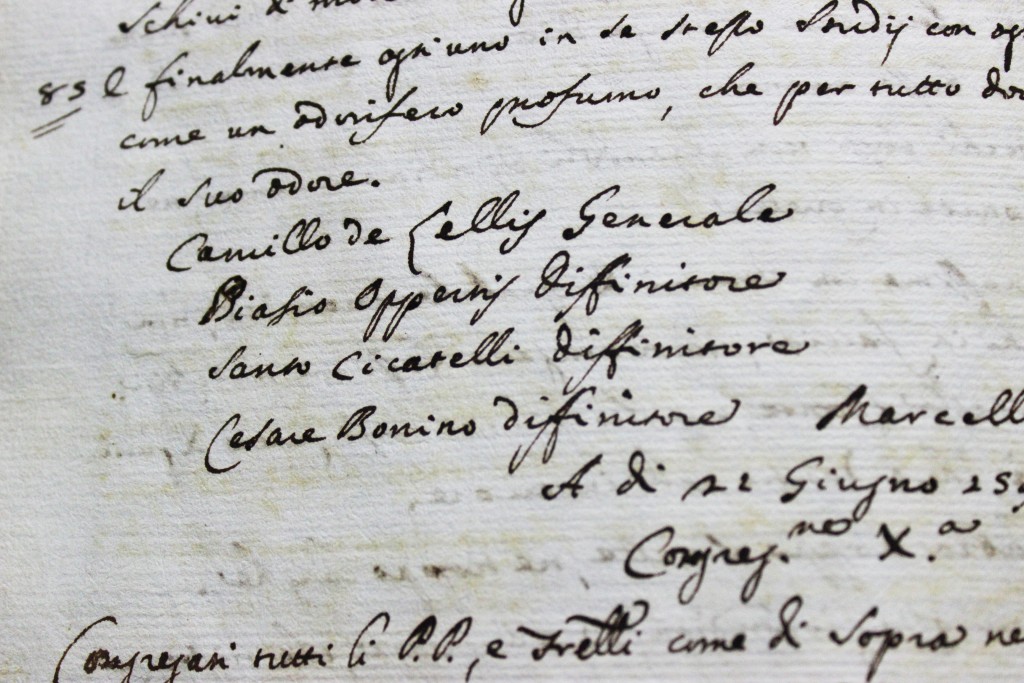 schivi di
85 E finalmente ogn'uno in se stesso studij con
come un odorifero profumo, che per tutto
il suo odore.
Camillo de Lellis Generale
Biasio Oppertis diffinitore
Santo Cicatelli diffinitore
Cesare Bonino diffinitore Marcell
A di 22 Giugno 159
Congreg.ne X.a
Congregati tutti li P.P., e Frelli come di sopra ne